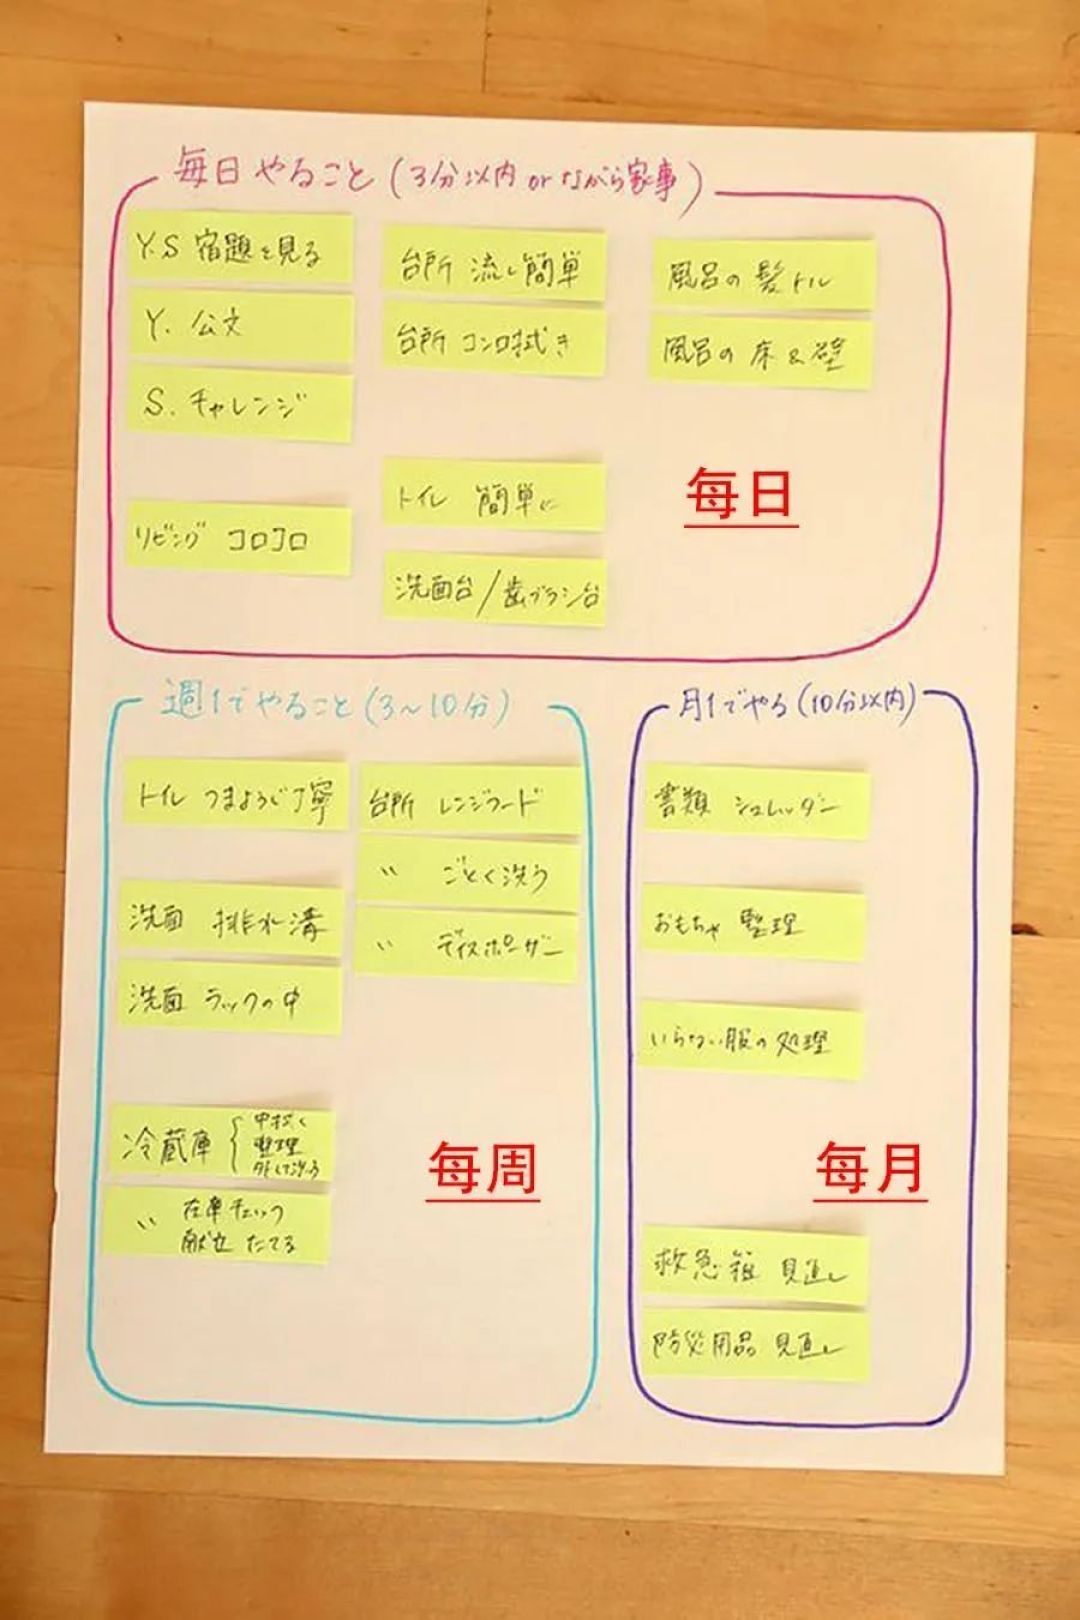 毎日やること(3分以内 or ながら家事)
Y.S 宿題を見る
Y. 公文
S. チャレンジ
リビング コロコロ
台所 流し簡単
台所 コンロ拭き
トイレ 簡単に
洗面台/歯ブラシ台
風呂の髪トル
風呂の床&壁
每日
週1でやること(3~10分)
トイレ つまようじ丁寧
洗面 排水溝
洗面 ラックの中
冷蔵庫
整理
〃 在庫チェック
献立 たてる
台所 レンジフード
〃 ごとく洗う
〃 ディスポーザー
每周
月1でやる(10分以内)
書類 シュレッダー
おもちゃ 整理
いらない服の処理
救急箱 見直し
防災用品 見直し
每月